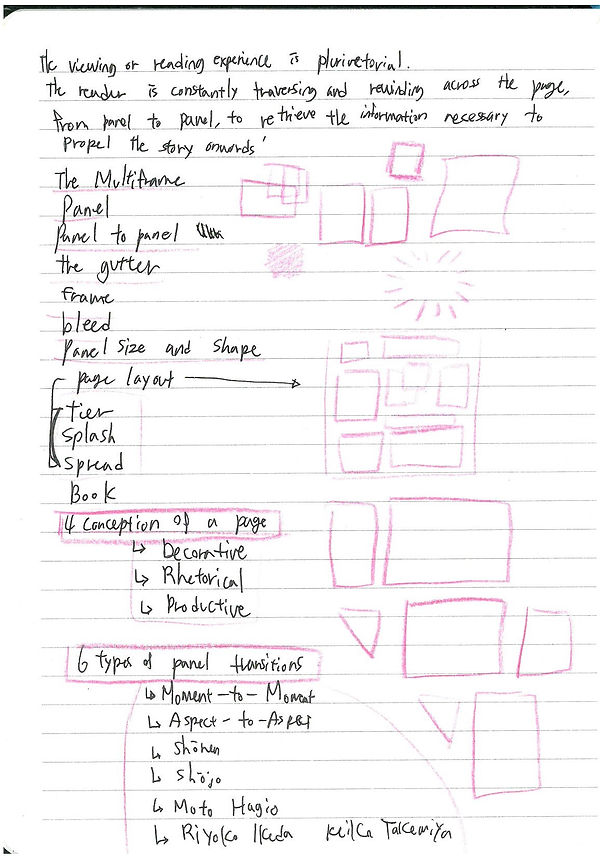 The viewing or reading experience is plurivetorial.
The reader is constantly traversing and rewinding across the page,
from panel to panel, to retrieve the information necessary to
propel the story onwards'
The Multiframe
Panel
Panel to panel
the gutter
Frame
bleed
Panel size and shape
page layout
tier
Splash
Spread
Book
4 conception of a page
↳ Decorative
↳ Rhetorical
↳ Productive
6 types of panel transitions
↳ Moment-to-Moment
↳ Aspect-to-Aspect
↳ Shōnen
↳ Shōjo
↳ Moto Hagio
↳ Riyoko Ikeda Keiko Takemiya